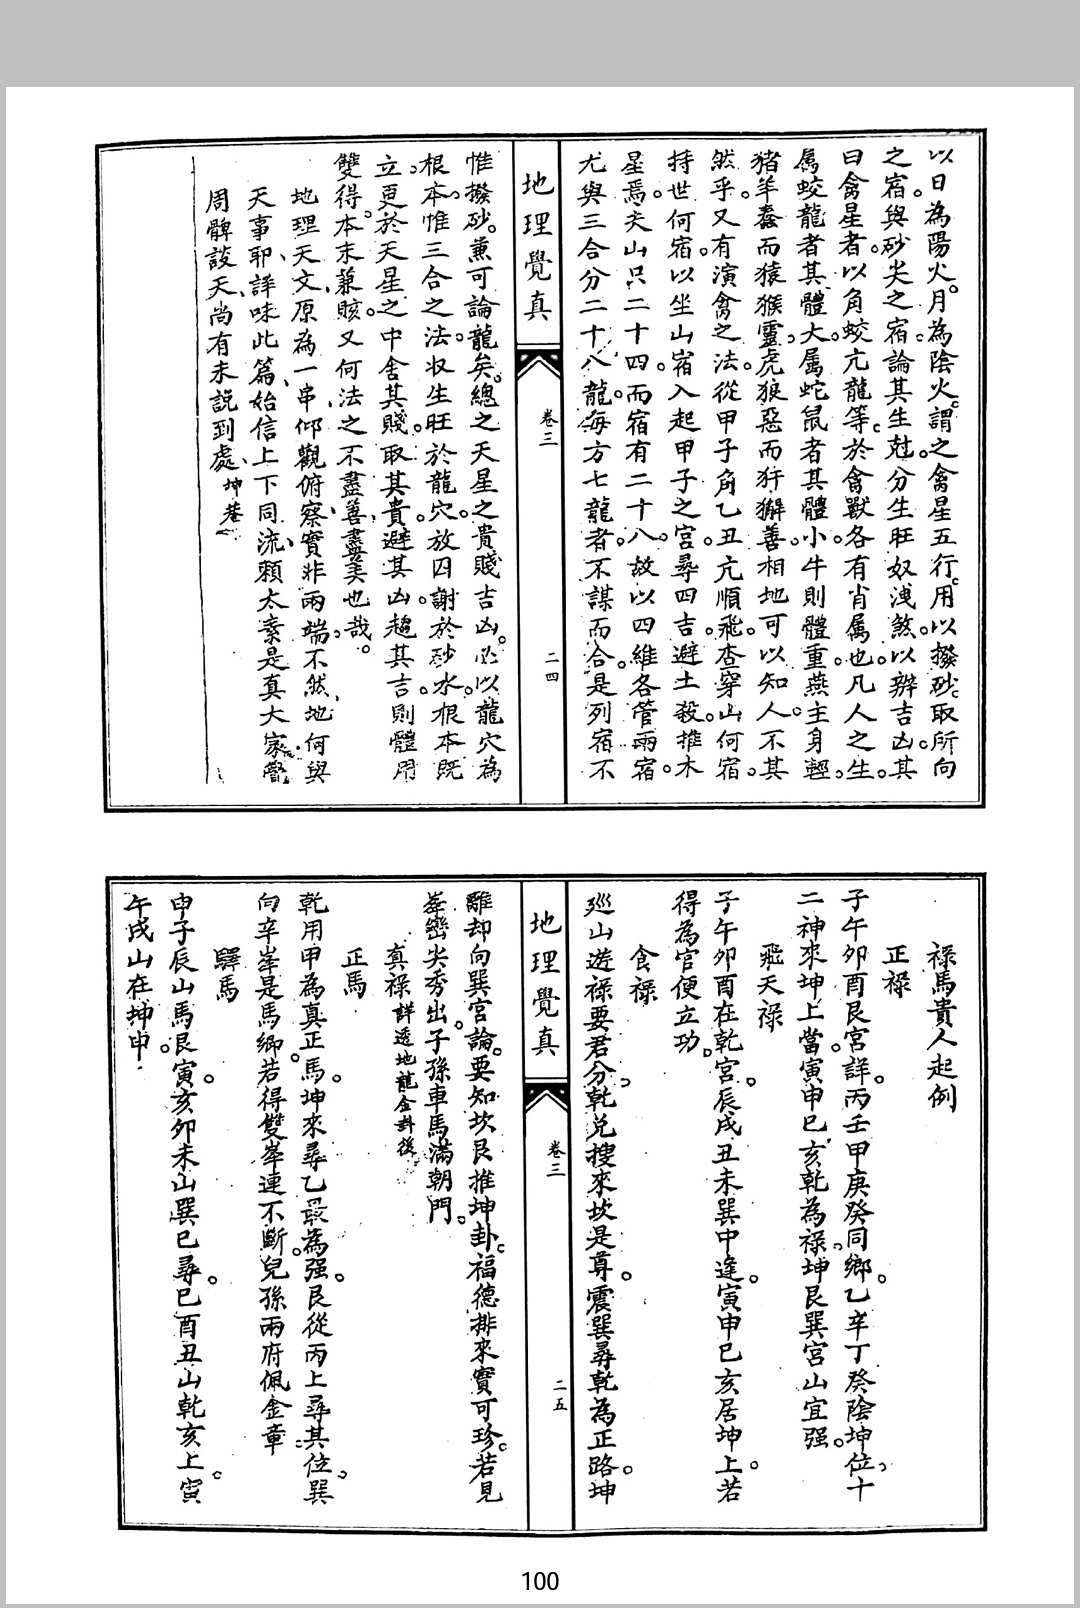 以日為陽火。月為陰火。謂之禽星五行。用以撥砂。取所向
之宿。與砂尖之宿。論其生尅。分生旺奴洩煞。以辨吉凶。其
曰禽星者。以角蛟亢龍等。於禽獸各有肖屬也。凡人之生。
屬蛟龍者其體大。屬蛇鼠者其體小。牛則體重。燕主身輕。
猪羊蠢而猿猴靈。虎狼惡而犴獬善。相地可以知人。不其
然乎。又有演禽之法。從甲子角乙丑亢順飛。查穿山何宿。
持世何宿。以坐山宿入起甲子之宮。尋四吉避土殺。推木
星焉。夫山只二十四。而宿有二十八。故以四維各管兩宿。
尤與三合分二十八龍。每方七龍者。不謀而合。是列宿不
地理覺真
卷三
二四
惟撥砂。兼可論龍矣。總之天星之貴賤吉凶。必以龍穴為
根本。惟三合之法。收生旺於龍穴。放四謝於砂水。根本既
立。更於天星之中。舍其賤。取其貴。避其凶。趨其吉。則體用
雙得。本末兼賅。又何法之不盡善盡美也哉。
地理天文原為一串仰觀俯察實非兩端不然地何與
天事耶詳味此篇始信上下同流賴太素是真大家嘗
周髀談天尚有未説到處 坤菴
祿馬貴人起例
正祿
子午卯酉艮宮詳。丙壬甲庚癸同鄉。乙辛丁癸陰坤位。十
二神來坤上當。寅申巳亥乾為祿。坤艮巽宮山宜强。
飛天祿
子午卯酉在乾宮。辰戌丑未巽中逢。寅申巳亥居坤上。若
得為官便立功。
食祿
巡山遊祿要君分。乾兌搜來坎是尊。震巽尋乾為正路。坤
地理覺真
卷三
二五
離却向巽宮論。要知坎艮推坤卦。福德排來實可珍。若見
峯巒尖秀出。子孫車馬滿朝門。
真祿 詳透地龍金卦後
正馬
乾用甲為真正馬。坤來尋乙最為强。艮從丙上尋其位。巽
向辛峯是馬鄉。若得雙峯連不斷。兒孫兩府佩金章。
驛馬
申子辰山馬艮寅。亥卯未山巽巳尋。巳酉丑山乾亥上。寅
午戌山在坤申。
100